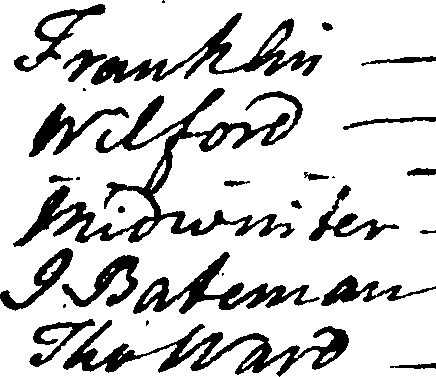 Franklin —
Wilford —
Midwinter -
J Bateman
Tho Ward —